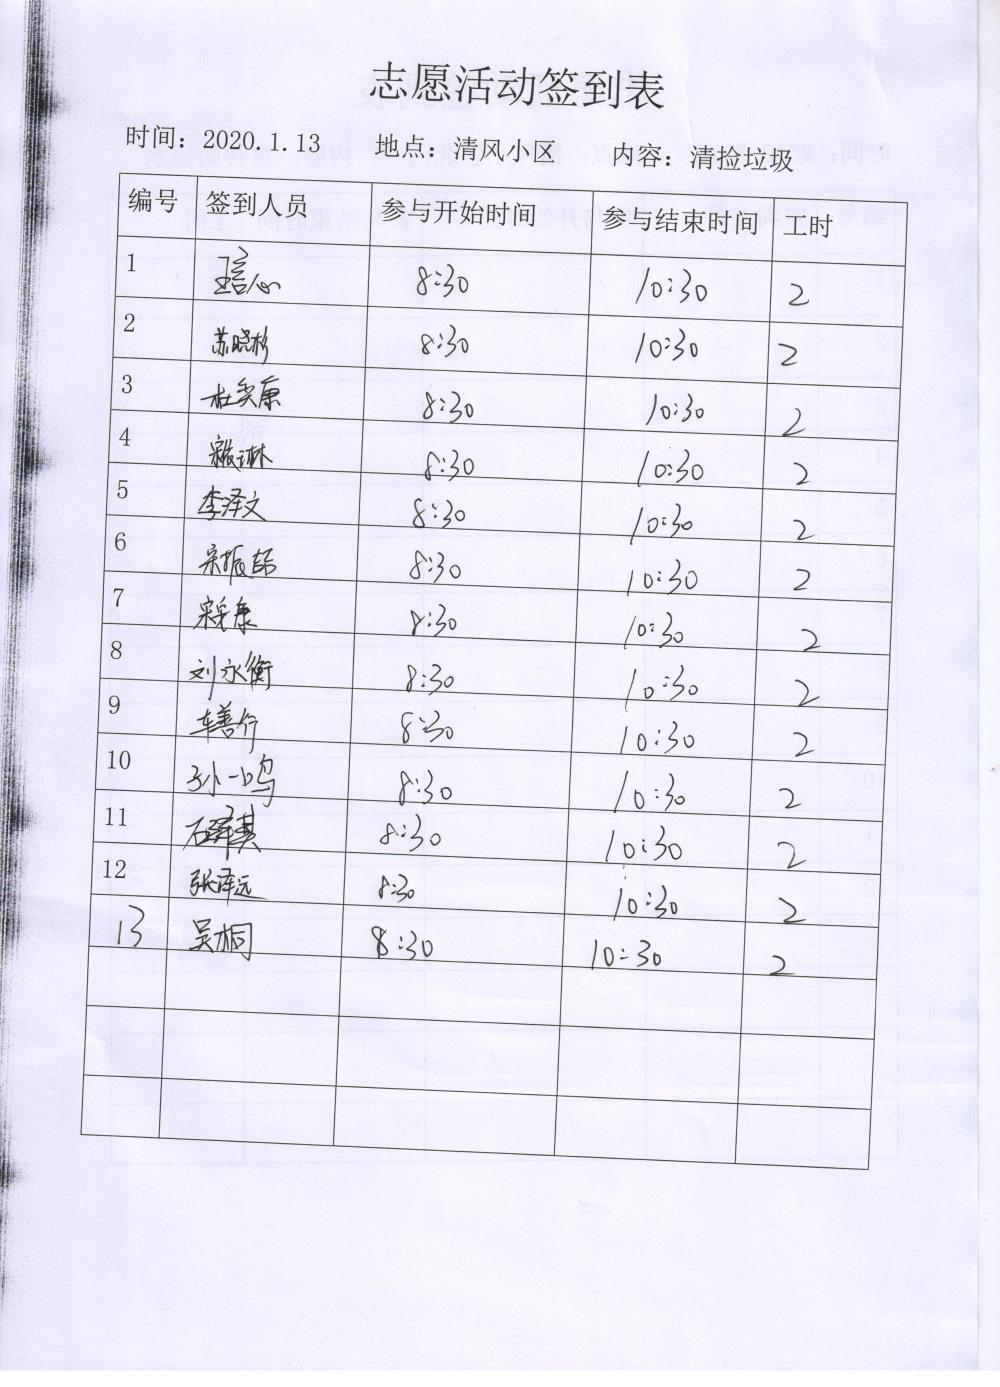 志愿活动签到表
时间：2020.1.13 地点：清风小区 内容：清捡垃圾
编号 签到人员 参与开始时间 参与结束时间 工时
1 8:30 10:30 2
2 苏晓杉 8:30 10:30 2
3 杜奕康 8:30 10:30 2
4 8:30 10:30 2
5 李泽文 8:30 10:30 2
6 8:30 10:30 2
7 8:30 10:30 2
8 刘永衡 8:30 10:30 2
9 车善行 8:30 10:30 2
10 孙一鸣 8:30 10:30 2
11 石泽其 8:30 10:30 2
12 张泽远 8:30 10:30 2
13 吴桐 8:30 10:30 2